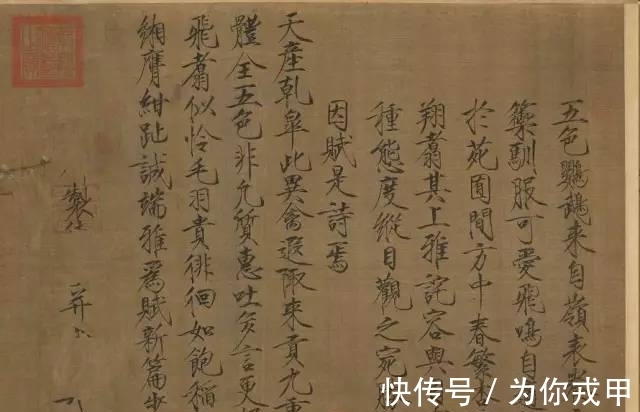 五色鸚鵡来自嶺表
籞馴服可愛飛鳴自
於苑囿間方中春繁
翔翥其上雅詫容與
種態度縱目觀之宛
因賦是詩焉
天産乾皋此異禽遐陬来貢九重
體全五色非凡質惠吐多言更
飛翥似怜毛羽貴徘徊如飽稻
緗膺紺趾誠端雅為賦新篇步
製
并
快传号/为你戎甲